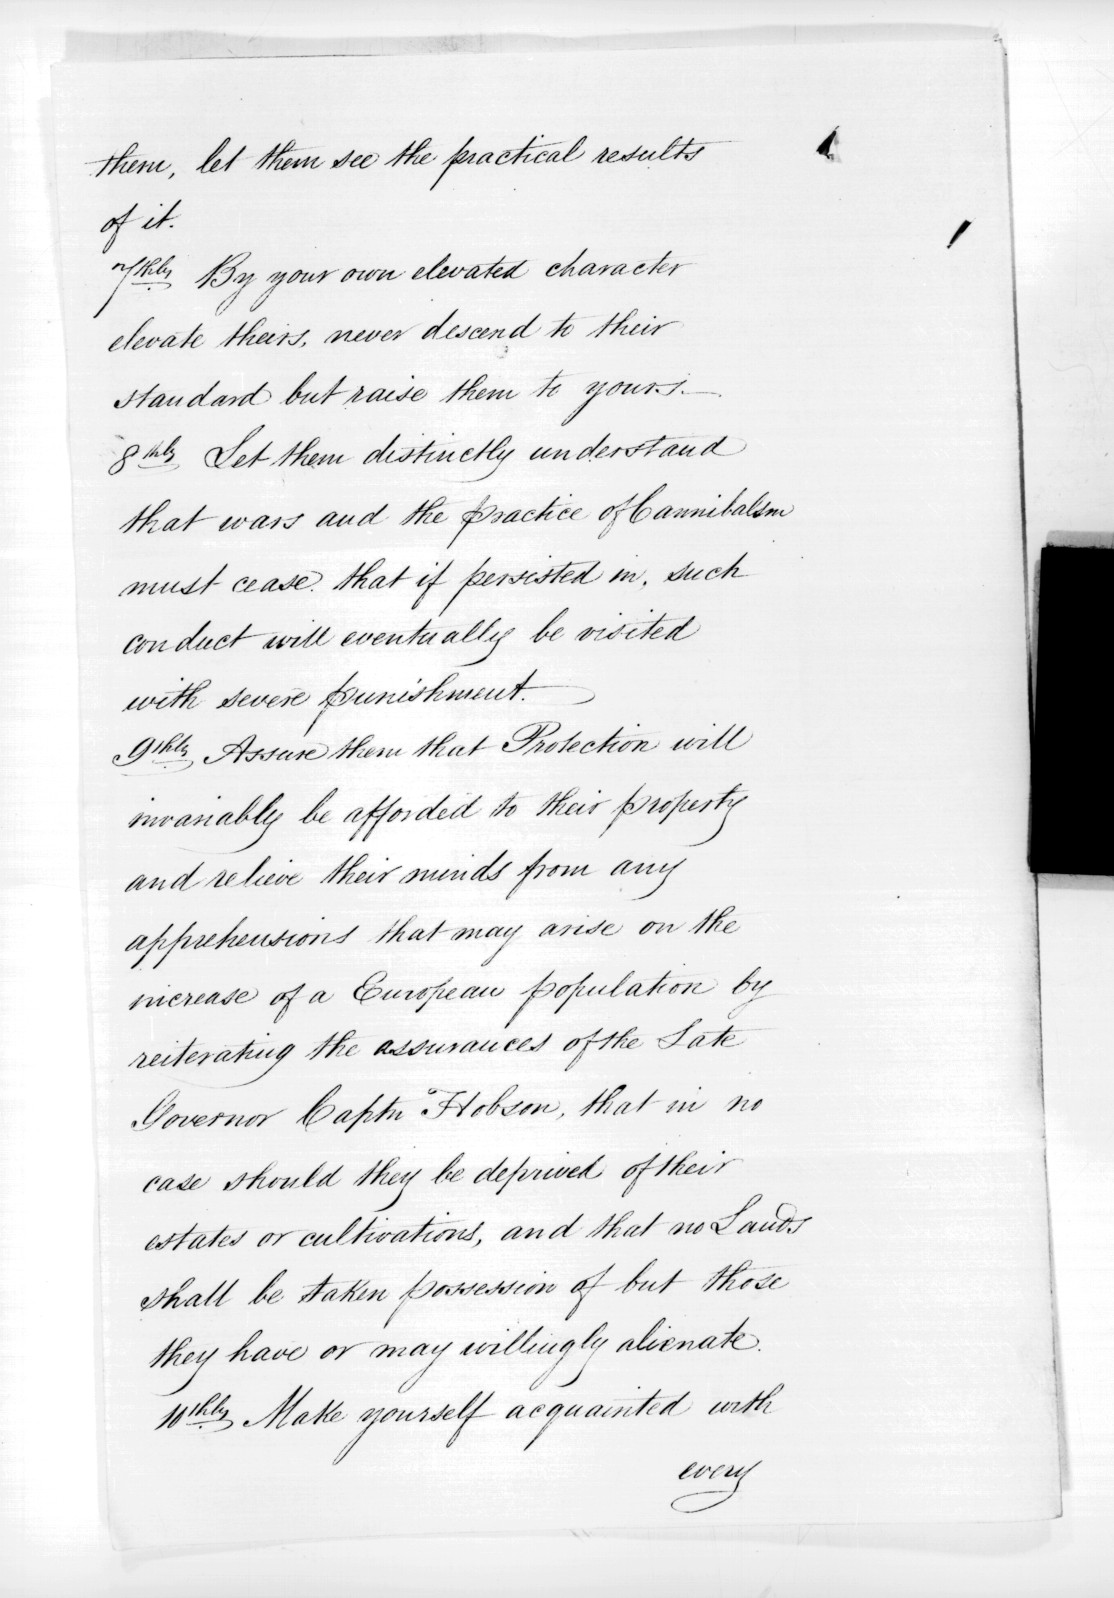 them, let them see the practical results
of it.
7thly By your own elevated character
elevate theirs, never descend to their
standard but raise them to yours.—
8thly Let them distinctly understand
that wars and the practice of Cannibalsm
must cease. that if persisted in, such
conduct will eventually be visited
with severe punishment.
9thly Assure them that Protection will
invariably be afforded to their property
and relieve their minds from any
apprehensions that may arise on the
increase of a European population by
reiterating the assurances of the Late
Governor Captn Hobson, that in no
case should they be deprived of their
estates or cultivations, and that no Lands
shall be taken possession of but those
they have or may willingly alienate.
10thly Make yourself acquainted with
every